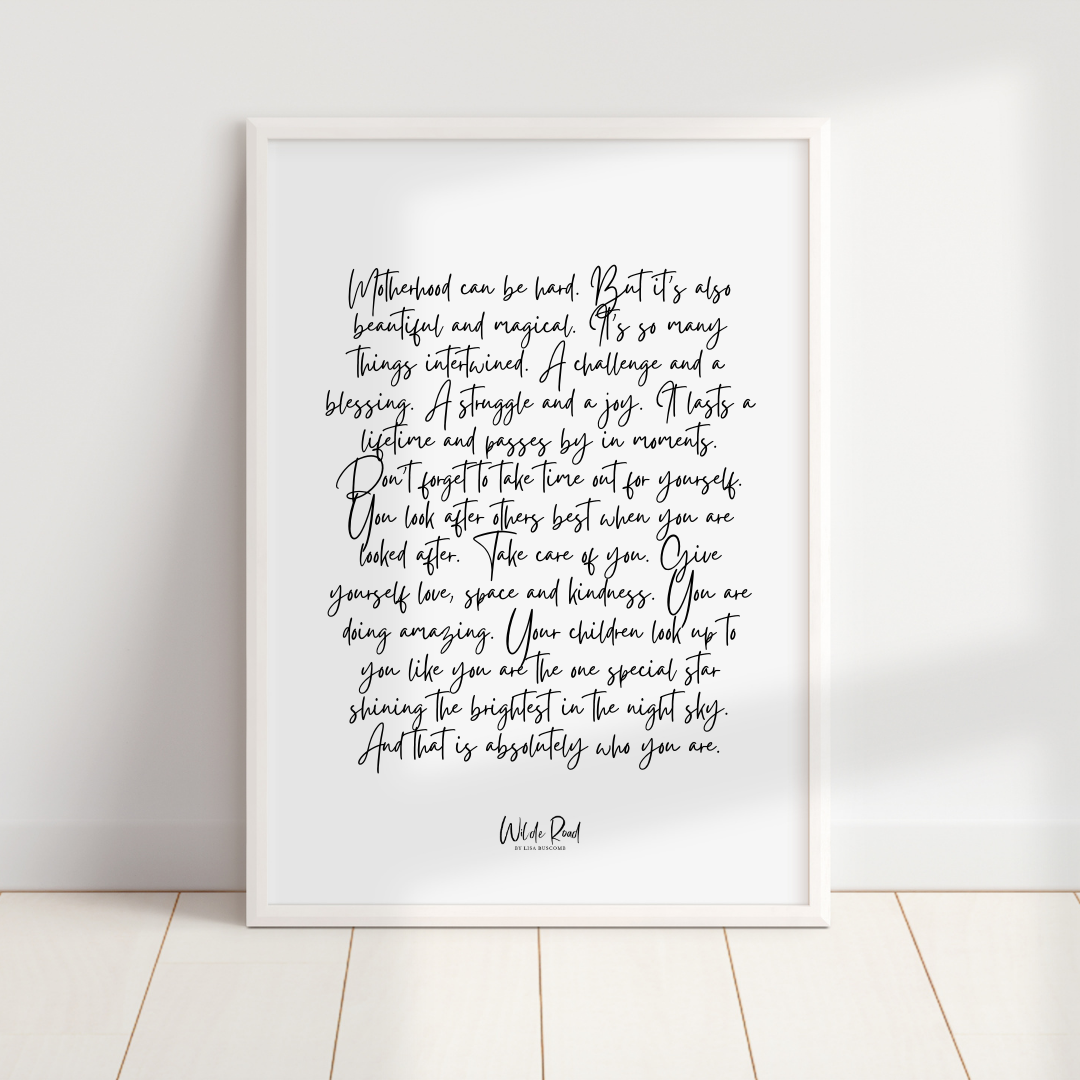 Motherhood can be hard. But it's also
beautiful and magical. It's so many
things intertwined. A challenge and a
blessing. A struggle and a joy. It lasts a
lifetime and passes by in moments.
Don't forget to take time out for yourself.
You look after others best when you are
looked after. Take care of you. Give
yourself love, space and kindness. You are
doing amazing. Your children look up to
you like you are the one special star
shining the brightest in the night sky.
And that is absolutely who you are.
Wilde Road
BY LISA BUSCOMB